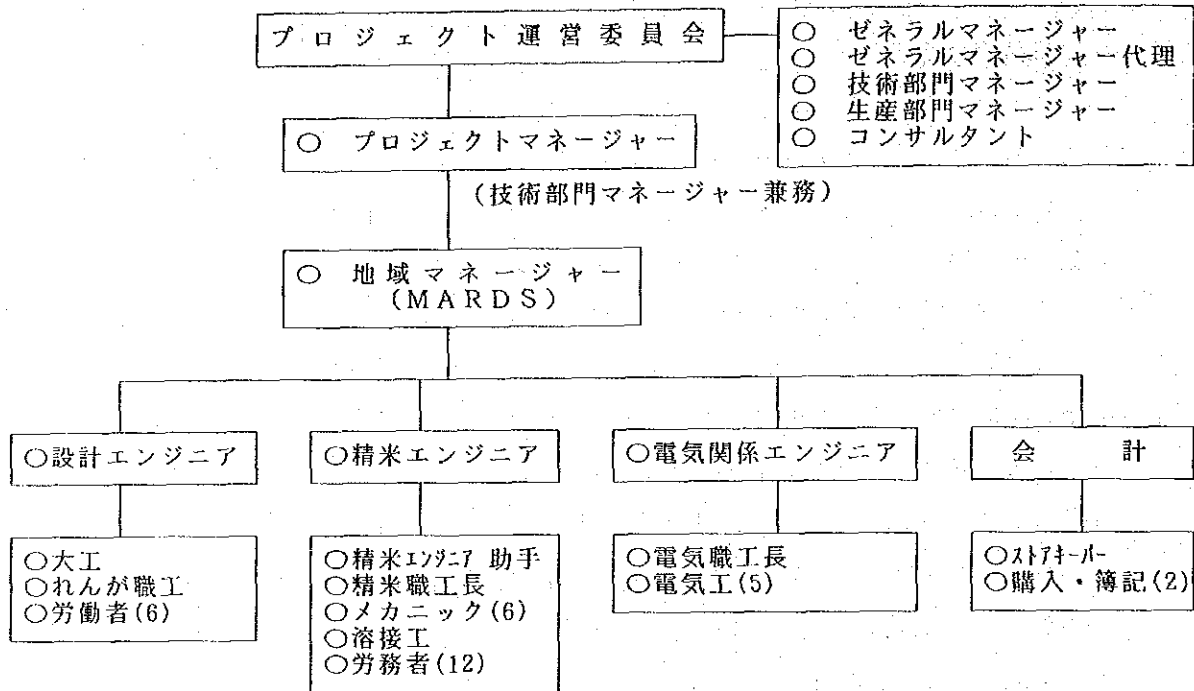 プロジェクト運営委員会
○ ゼネラルマネージャー
○ ゼネラルマネージャー代理
○ 技術部門マネージャー
○ 生産部門マネージャー
○ コンサルタント
○ プロジェクトマネージャー
(技術部門マネージャー兼務)
○ 地域マネージャー
(MARDS)
○設計エンジニア
○精米エンジニア
○電気関係エンジニア
会計
○大工
○れんが職工
○労働者(6)
○精米エンジニア 助手
○精米職工長
○メカニック(6)
○溶接工
○労務者(12)
○電気職工長
○電気工(5)
○ストアキーパー
○購入・簿記(2)